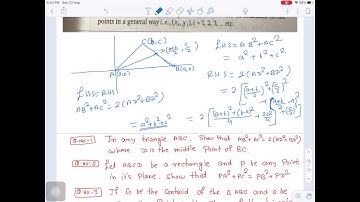 5:43 PM Sun 23 Aug
points in a general way i.e., (xᵢ, yᵢ), i = 1, 2, 3, ... etc.
C(b,c)
D(a+b/2, c/2)
A(0,0)
B(a,0)
LHS = AB²+AC²
= a²+b²+c²
RHS = 2(AD²+BD²)
= 2[(a+b/2)²+(c/2)²
LHS=RHS
AB²+AC² = 2(AD²+BD²)
= a²+b²+c²
Q.no-1 In any triangle ABC, Show that AB²+AC² = 2(AD²+BD²)
where D is the middle Point of BC.
Q.no-2 Let ABCD a rectangle and P be any Point
in it's Plane. Show that PA²+PC² = PB²+PD²
Q.no-3 If G be the Centroid of the △ABC and O be